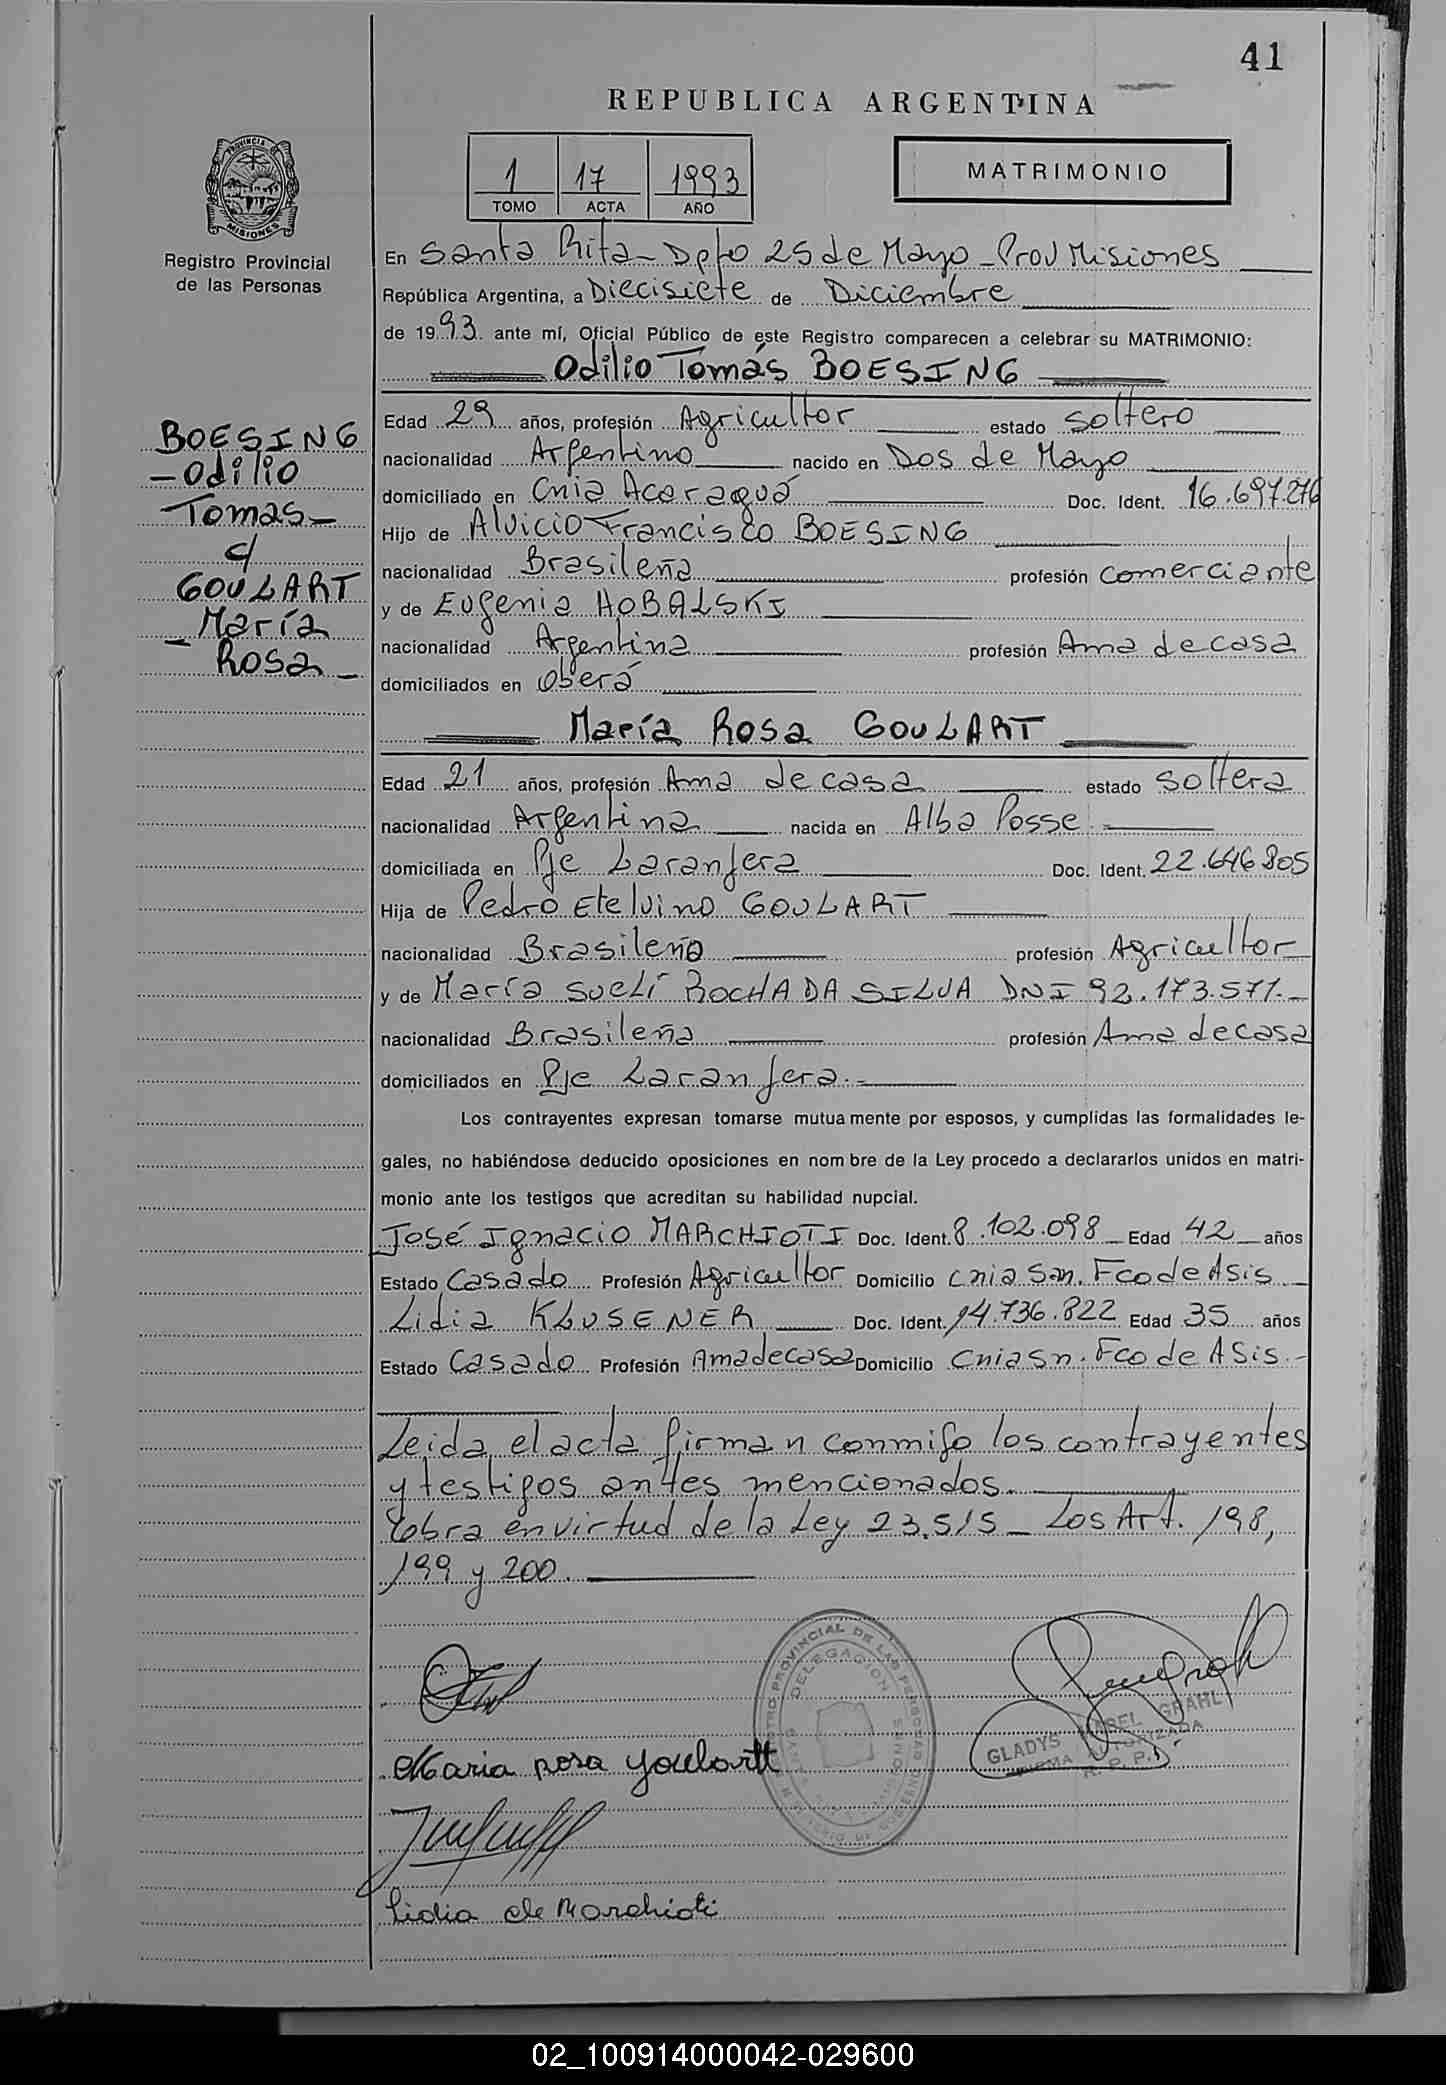 41
REPUBLICA ARGENTINA
PROVINCIA DE
MISIONES
Registro Provincial
de las Personas
1 17 1993
TOMO ACTA AÑO
MATRIMONIO
En Santa Rita - Dpto 25 de Mayo - Prov Misiones
República Argentina, a Diecisiete de Diciembre
de 1993 ante mí, Oficial Público de este Registro comparecen a celebrar su MATRIMONIO:
Odilio Tomás BOESING
BOESING
- Odilio
Tomas -
c/
GOULART
- María
Rosa -
Edad 29 años, profesión Agricultor estado Soltero
nacionalidad Argentino nacido en Dos de Mayo
domiciliado en Cnia Acaraguá Doc. Ident. 16.697.276
Hijo de Alvicio Francisco BOESING
nacionalidad Brasileña profesión Comerciante
y de Eugenia HOBALSKI
nacionalidad Argentina profesión Ama de casa
domiciliados en Oberá
María Rosa GOULART
Edad 21 años, profesión Ama de casa estado Soltera
nacionalidad Argentina nacida en Alba Posse
domiciliada en Pje Laranjera Doc. Ident. 22.646.805
Hija de Pedro Etelvino GOULART
nacionalidad Brasileño profesión Agricultor
y de María Suelí ROCHA DA SILVA DNI 92.173.571.-
nacionalidad Brasileña profesión Ama de casa
domiciliados en Pje Laranjera.-
Los contrayentes expresan tomarse mutuamente por esposos, y cumplidas las formalidades le-
gales, no habiéndose deducido oposiciones en nombre de la Ley procedo a declararlos unidos en matri-
monio ante los testigos que acreditan su habilidad nupcial.
José Ignacio MARCHIOTI Doc. Ident. 8.102.098 Edad 42 años
Estado Casado Profesión Agricultor Domicilio Cnia San. Fco de Asis
Lidia KLUSENER Doc. Ident. 14.736.822 Edad 35 años
Estado Casado Profesión Ama de casa Domicilio Cnia Sn. Fco de Asis.-
Leida el acta firman conmigo los contrayentes
y testigos antes mencionados.
Obra en virtud de la Ley 23.515 - Los Art. 198,
199 y 200.
REGISTRO PROVINCIAL DE LAS PERSONAS
DELEGACION
GLADYS MABEL GRAHL
FIRMA AUTORIZADA
R. P. P.
Maria rosa Goulartt
Lidia de Marchioti
02_100914000042-029600